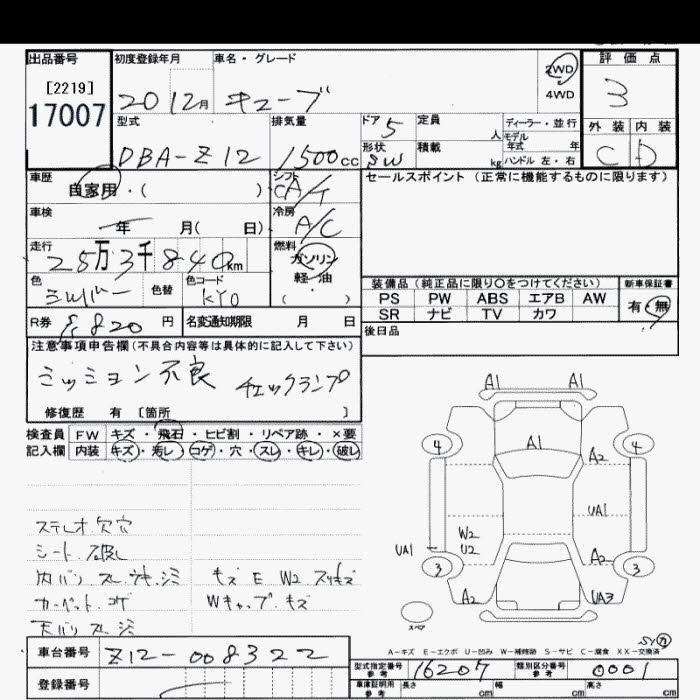 出品番号 初度登録年月 車名・グレード 2WD 4WD 評価点
[2219]
17007 20 12月 キューブ 3
型式 排気量 ドア 5 定員 人 ディーラー・並行 外装 内装
DBA-Z12 1500cc 形状 SW 積載 kg モデル年式 年 C D
ハンドル 左・右
車歴 シフト セールスポイント(正常に機能するものに限ります)
自家用・( ) CA/T
車検 冷房
年 月( 日) A/C
走行 燃料
25万3千840km ガソリン
色 色替 色コード 軽・油 装備品(純正品に限り○をつけてください) 新車保証書
シルバー KY0 ( ) PS PW ABS エアB AW 有・無
SR ナビ TV カワ
R券 8,820円 名変通知期限 月 日 後日品
注意事項申告欄(不具合内容等は具体的に記入して下さい)
ミッション不良 チェックランプ
修復歴 有 [箇所 ]
検査員 FW キズ・飛石・ヒビ割・リペア跡・×要
記入欄 内装 キズ・汚レ・コゲ・穴・スレ・キレ・破レ
ステレオ欠穴
シート破レ
内バリ スレ キズ シミ キズ E W2 スリキズ
カーペット コゲ Wキャップ キズ
天バリ スレ シミ
A1 A1
4 A1 4
A2
UA1
W2
UA1 U2
3 A2 3
A2 UA3
スペア
A-キズ E-エクボ U-凹み W-補修跡 S-サビ C-腐食 XX-交換済
車台番号 Z12-008322 型式指定番号 参考 16207 類別区分番号 参考 0001
登録番号 車庫証明用 参考 長さ cm 幅 cm 高さ cm